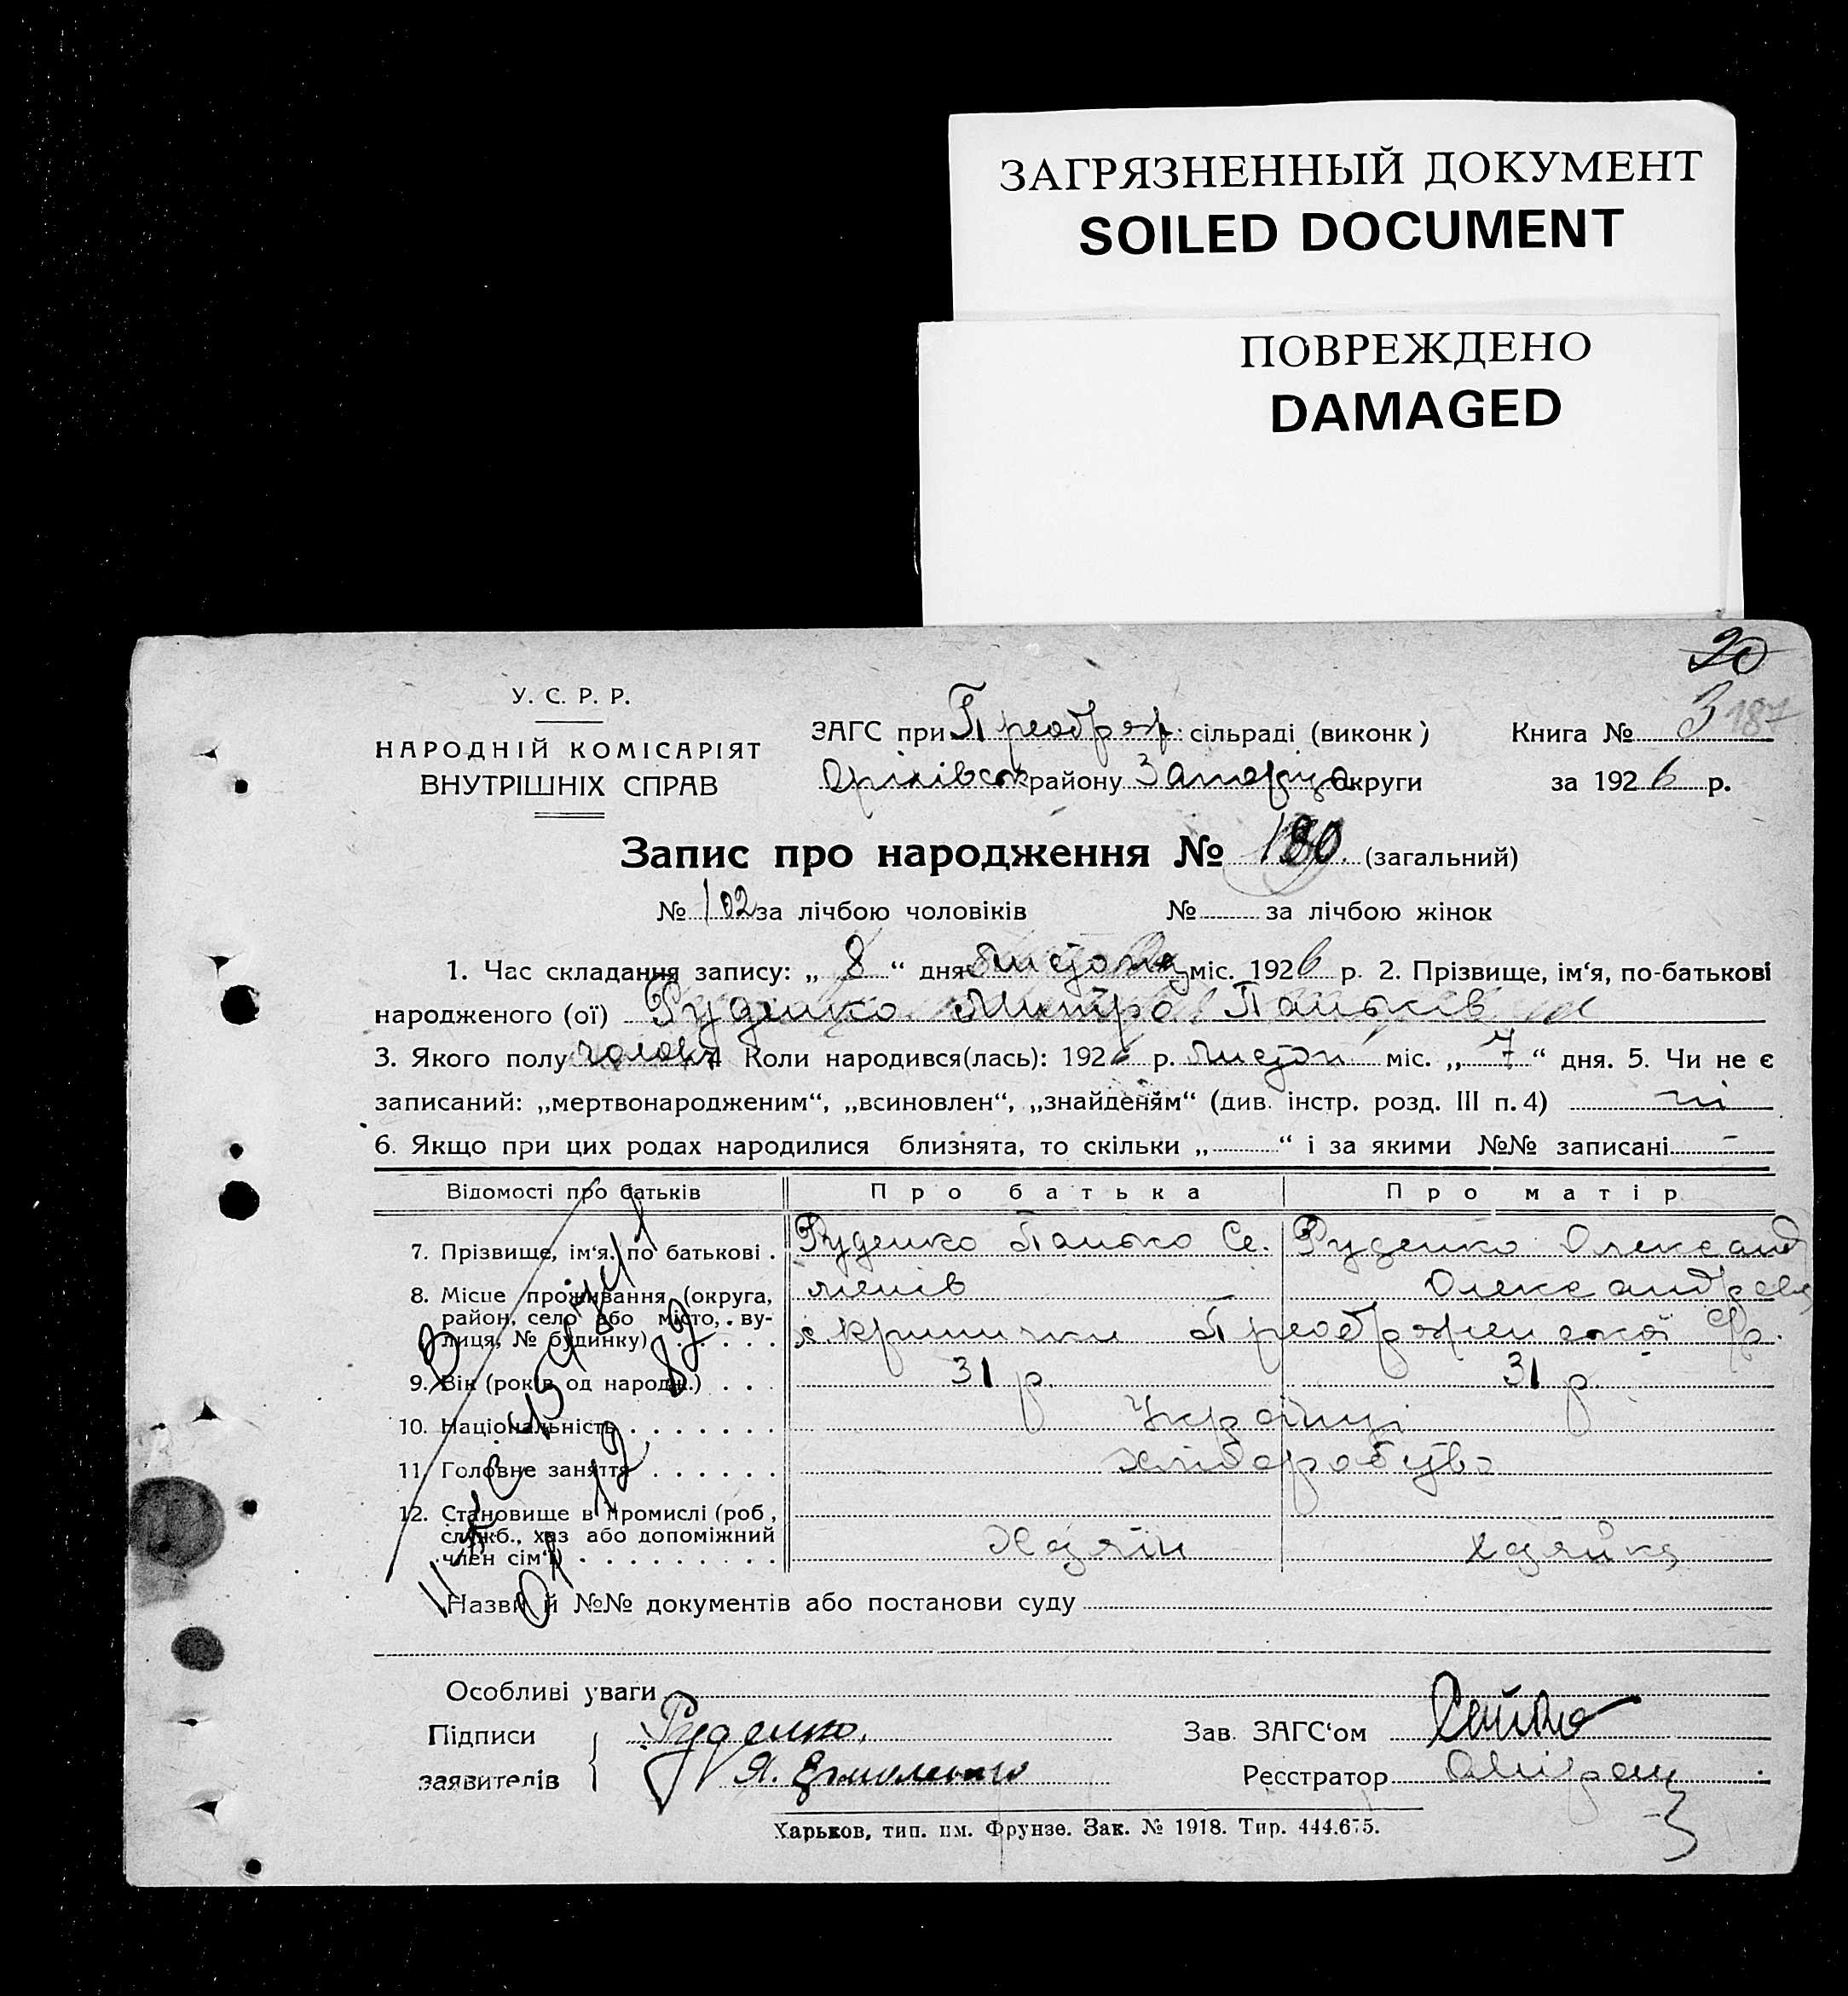 ЗАГРЯЗНЕННЫЙ ДОКУМЕНТ
SOILED DOCUMENT
ПОВРЕЖДЕНО
DAMAGED
20
У. С. Р. Р.
НАРОДНІЙ КОМІСАРІЯТ
ВНУТРІШНІХ СПРАВ
ЗАГС при Преображ. сільраді (виконк)
Оріхівськ району Запоріз округи
Книга № 3 187
за 1926 р.
Запис про народження № 180 (загальний)
№ 102 за лічбою чоловіків № за лічбою жінок
1. Час складання запису: „ 8 “ дня Листопад міс. 1926 р. 2. Прізвище, ім‘я, по-батькові
народженого (ої) Руденко Митро Паньків
3. Якого полу чолов. 4 Коли народився(лась): 1926 р. Листоп міс. „ 7 “ дня. 5. Чи не є
записаний: „мертвонародженим“, „всиновлен“, „знайденям“ (див. інстр. розд. III п. 4) ні
6. Якщо при цих родах народилися близнята, то скільки „ “ і за якими №№ записані –
Відомості про батьків Про батька Про матір
7. Прізвище, ім‘я, по батькові . Руденко Панько Се- Руденко Олександ
менів Олександров
8. Місце проживання (округа,
район, село або місто, ву-
лиця, № будинку) . . . . . с Кринички Преображенської
9. Вік (років од народж.) . . . 31 р. 31 р.
10. Національність . . . . . . . Українці
11. Головне заняття . . . . . . хліборобство
12. Становище в промислі (роб,
служб., хаз або допоміжний
член сім‘ї) . . . . . . . . . . Хазяїн хазяйка
Назви й №№ документів або постанови суду
Особливі уваги
Підписи
заявителів
Руденко.
Я. Ермоленко
Зав. ЗАГС‘ом
Реєстратор
Харьков, тип. им. Фрунзе. Зак. № 1918. Тир. 444.675.